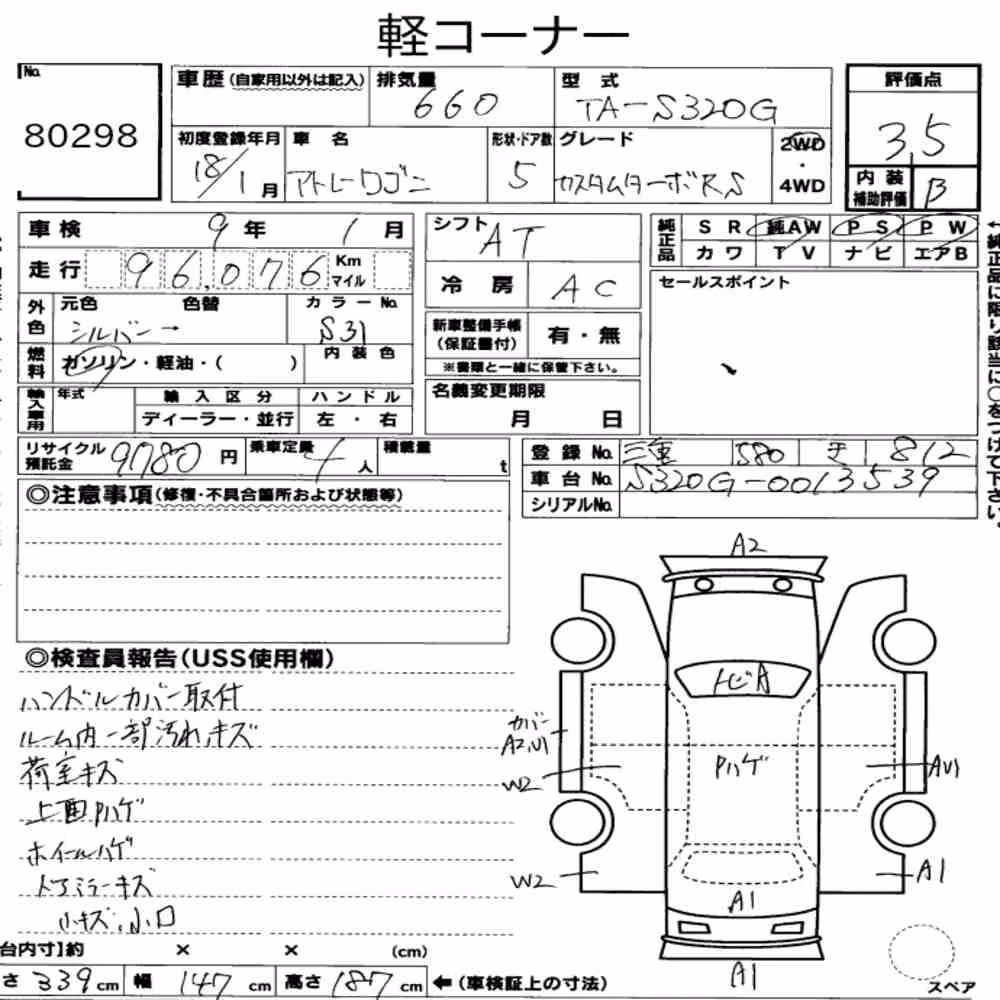 軽コーナー
No. 80298
車歴(自家用以外は記入) 排気量 660 型式 TA-S320G 評価点 3.5
初度登録年月 18/1月 車名 アトレーワゴン 形状・ドア数 5 グレード カスタムターボRS 2WD・4WD 内装補助評価 B
車検 9年 1月 シフト AT 純正品 SR 純AW PS PW
カワ TV ナビ エアB
走行 96,076 Km マイル 冷房 AC セールスポイント
外色 元色 シルバー→ 色替 カラーNo. S31 新車整備手帳(保証書付) 有・無
燃料 ガソリン・軽油・( ) 内装色 ※書類と一緒に保管下さい。
輸入車用 年式 輸入区分 ハンドル 名義変更期限
ディーラー・並行 左・右 月 日
リサイクル預託金 9780円 乗車定量 4人 積載量 t 登録No. 三重 580 812
車台No. S320G-0013539
◎注意事項(修復・不具合箇所および状態等) シリアルNo.
←純正品に限り該当に○をつけて下さい。
◎検査員報告(USS使用欄)
ハンドルカバー取付
ルーム内一部汚れ、キズ
荷室キズ
上面Pハゲ
ホイールハゲ
ミラーキズ
小キズ、小凹
A2
トビA
カバー
A2,U1
W2
Pハゲ
AU1
W2
A1
A1
A1
スペア
台内寸】約 × × (cm)
さ 339cm 幅 147cm 高さ 187cm ←(車検証上の寸法)